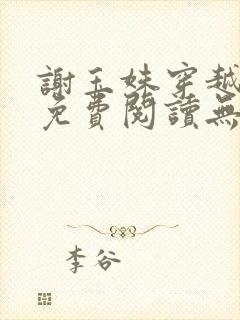 謝玉姝穿越
免費閱讀無
李谷